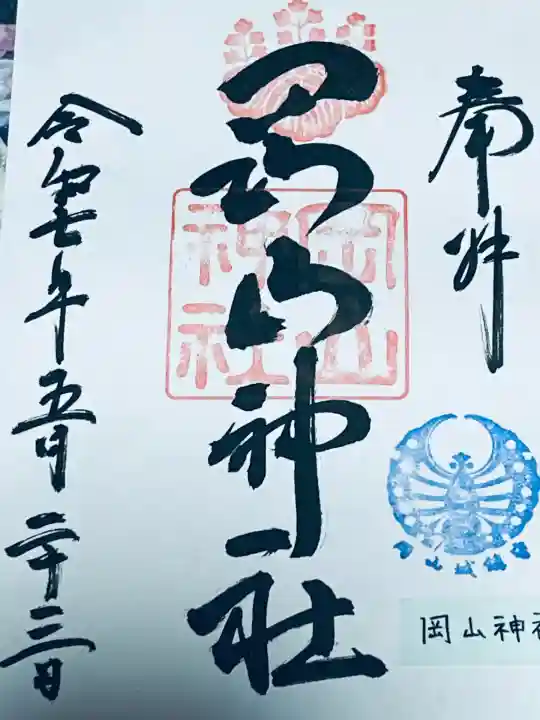 奉拝
岡山神社
岡山
神社
令和七年五月二十三日
岡山神社